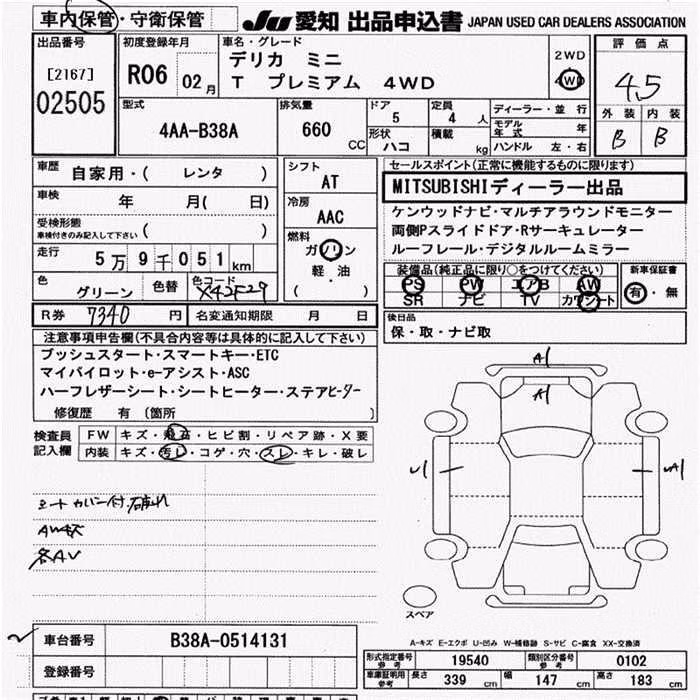 車内保管・守衛保管
JU 愛知 出品申込書 JAPAN USED CAR DEALERS ASSOCIATION
出品番号
[2167]
02505
初度登録年月
R06 02月
車名・グレード
デリカ ミニ
T プレミアム 4WD
2WD
4WD
評価点
4.5
外装 内装
B B
型式
4AA-B38A
排気量
660 CC
ドア
5
形状
ハコ
定員
4人
積載
kg
ディーラー・並行
モデル年式 年
ハンドル 左・右
車歴 自家用・( レンタ )
車検 年 月( 日)
受検形態
車検付きのみ記入して下さい ( )
走行 5万9千051km
色 グリーン 色替 色コード X42F29
シフト
AT
冷房
AAC
燃料
ガソリン
軽・油
( )
セールスポイント(正常に機能するものに限ります)
MITSUBISHIディーラー出品
ケンウッドナビ・マルチアラウンドモニター
両側Pスライドドア・Rサーキュレーター
ルーフレール・デジタルルームミラー
装備品(純正品に限り○をつけてください)
PS PW エアB AW
SR ナビ TV カワシート
新車保証書
有・無
R券 7340 円 名変通知期限 月 日
後日品
保・取・ナビ取
注意事項申告欄(不具合内容等は具体的に記入して下さい)
プッシュスタート・スマートキー・ETC
マイパイロット・e-アシスト・ASC
ハーフレザーシート・シートヒーター・ステアヒーター
修復歴 有 (箇所 )
検査員記入欄
FW キズ・飛石・ヒビ割・リペア跡・X要
内装 キズ・汚レ・コゲ・穴・スレ・キレ・破レ
シートカバー付
AWキズ
各AU
A1
A1
U1
A1
スペア
A-キズ E-エクボ U-凹み W-補修跡 S-サビ C-腐食 XX-交換済
車台番号 B38A-0514131
登録番号
形式指定番号 参考 19540 類別区分番号 参考 0102
車庫証明用 参考 長さ 339 cm 幅 147 cm 高さ 183 cm